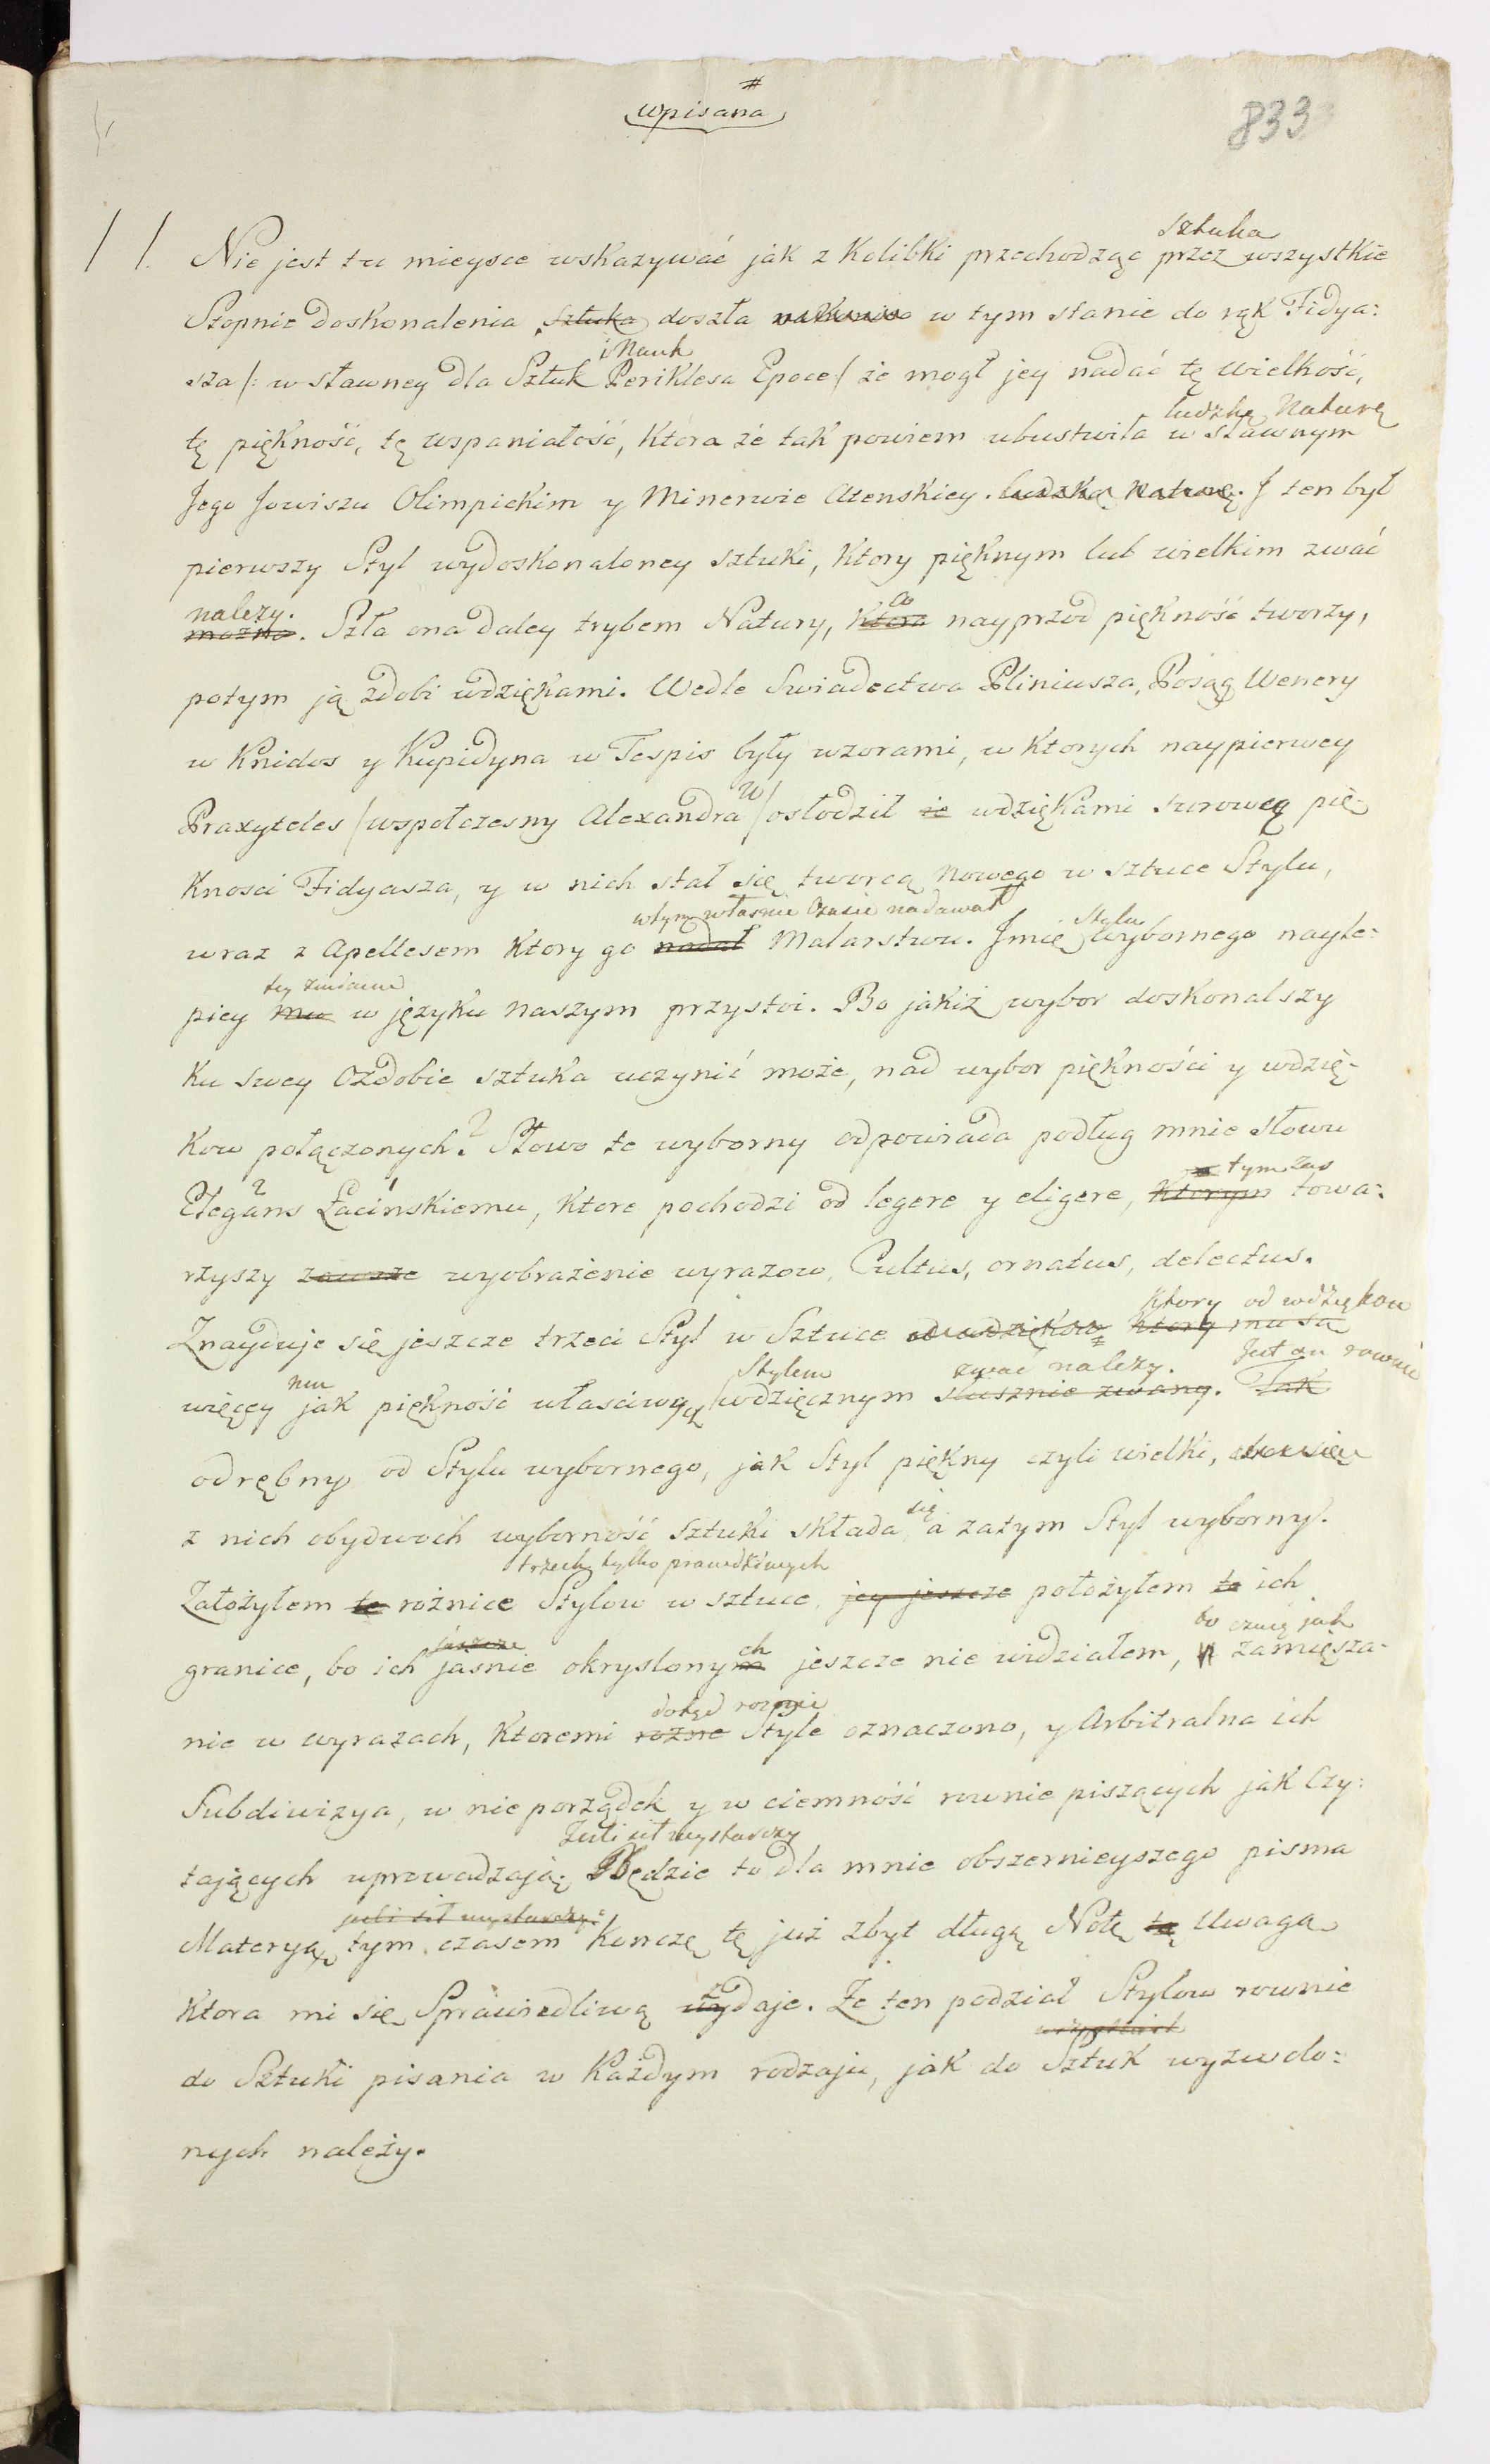 #
wpisana
833
sztuka
Nie jest tu mieysce wskazywać jak z Kolibki przechodząc przez wszystkie
Stopnie doskonalenia sztuka doszła w tym stanie do rąk Fidya:
i Nauk
sza /: w sławney dla Sztuk Periklesa Epoce / że mogł jey nadać tę wielkość,
ludzką Naturę
tę piękność, tę wspaniałość, Ktora że tak powiem ubustwiła w sławnym
Jego Jowiszu Olimpickim y Minerwie Atenskiey. ludzką Naturę. J ten był
pierwszy Styl wydoskonaloney sztuki, Ktory pięknym lub wielkim zwać
należy. co
można. Szła ona daley trybem Natury, Ktora nayprzod piękność tworzy,
potym ją zdobi wdziękami. Wedle Swiadectwa Pliniusza, Posąg Wenery
w Knidos y Kupidyna w Tespis były wzorami, w Ktorych naypierwey
w
Praxyteles / wspołczesny Alexandra / osłodził ie wdziękami surowcą pię-
Knosci Fidyasza, y w nich stał się tworcą Nowego w sztuce Stylu,
w tym własnie Czasie nadawał Stylu
wraz z Apellesem Ktory go nadał Malarstwu. Jmię wybornego nayle:
tey zmianie
piey mu w języku Naszym przystoi. Bo jakiż wybor doskonalszy
Ku swey Ozdobie sztuka uczynić może, nad wybor piękności y wdzię-
Kow połączonych? Słowo te wyborny odpowiada podług mnie słowu
tym zas
Elegans Łacińskiemu, Ktore pochodzi od legere y eligere, Ktorym towa:
rzyszy zawsze wyobrażenie wyrazow, Cultus, ornatus, delectus.
Ktory od wdziękow
Znayduje się jeszcze trzeci Styl w Sztuce od wdziękow Ktory mu są
niż Stylem zwać należy. Jest on rownie
więcey jak piękność własciwy wdzięcznym słusznie zwany. Tak
odrębny od Stylu wybornego, jak Styl piękny czyli wielki,
się
z nich obydwoch wyborność Sztuki składa, a zatym Styl wyborny.
trzech tylko prawdziwych
Założyłem te rożnice Stylow w sztuce, jey jeszcze położyłem te ich
jeszcze ch bo czuię jak
granice, bo ich jasnie okryslonym jeszcze nie widziałem, zamiesza-
dotąd rozmie
nie w wyrazach, Ktoremi rożne Style oznaczono, y Arbitralna ich
Subdiwizya, w nieporządek y w ciemność rownie piszących jak Czy:
Jesli sił wystarczy
tających wprowadzają. Będzie to dla mnie obszernieyszego pisma
jesli sił wystarczy.
Materyą, tym czasem Kończę tę już zbyt długą Notę tą Uwagą
Ktora mi się Sprawiedliwą wydaje. Że ten podział Stylow rownie
wszystkich
do Sztuki pisania w Każdym rodzaju, jak do Sztuk wyzwolo:
nych należy.